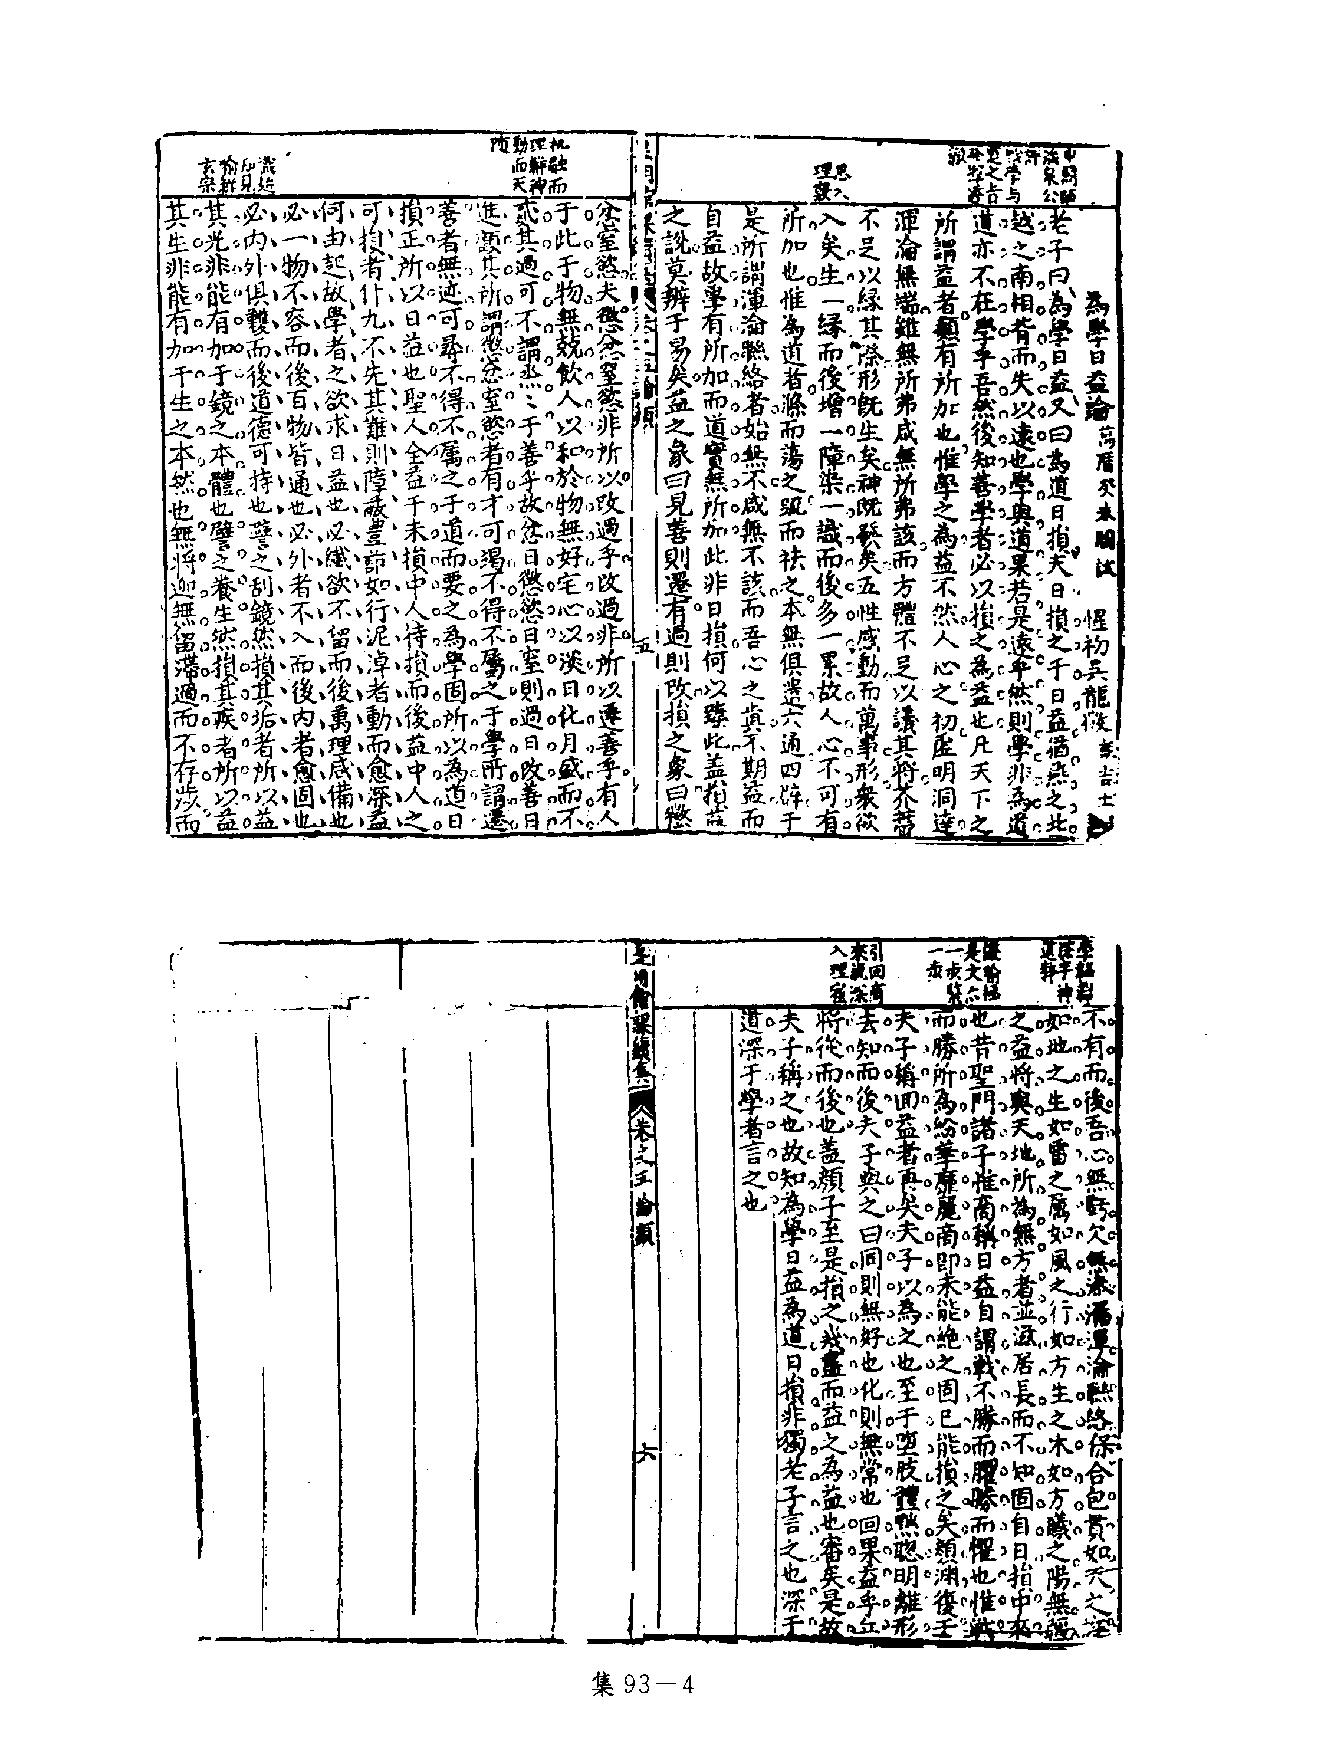 為學日益論 萬曆癸未閣試 惺初吳龍徵 
老子曰為學日益又曰為道日損夫日損之于日益猶燕之北
越之南相背而失以遠也學與道果若是遠乎然則學非為道
道亦不在學乎吾然後知善學者必以損之為益也凡天下之
所謂益者類有所加也惟學之為益不然人心之初虛明洞達
渾淪無端雖無所弗咸無所弗該而方體不足以議其將芥蔕
不足以緣其際形既生矣神既發矣五性感動而萬事形衆欲
入矣生一緣而後增一障染一識而後多一累故人心不可有
所加也惟為道者滌而蕩之驅而祛之本無俱遣六通四辟于
是所謂渾淪聯絡者始無不咸無不該而吾心之真不期益而
自益故學有所加而道實無所加此非日損何以臻此蓋損益
之說莫辨于易矣益之象曰見善則遷有過則改損之象曰懲
忿窒慾夫懲忿窒慾非所以改過乎改過非所以遷善乎有人
于此于物無兢飲人以和於物無好宅心以淡日化月盛而不
貳其過可不謂烝烝于善乎故忿日懲慾日窒則過日改善日
進顧其所謂懲忿窒慾者有才可竭不得不屬之于學所謂遷
善者無迹可尋不得不屬之于道而要之為學固所以為道日
損正所以日益也聖人全益于未損中人待損而後益中人之
可損者什九不先其難則障蔽豈詎如行泥淖者動而愈深益
何由起故學者之欲求日益也必纖欲不留而後萬理咸備也
必一物不容而後百物皆通也必外者不入而後內者愈固也
必內外俱韄而後道德可持也譬之刮鏡然損其垢者所以益
其光非能有加于鏡之本體也譬之養生然損其疾者所以益
其生非能有加于生之本然也無將迎無留滯過而不存涉而
五
机融而
理解神
動而天
隨
思入
理窽
玄宗
不有而後吾心無虧欠無滲漏渾淪聯絡保合包貫如天之
如地之生如雷之厲如風之行如方生之木如方曦之陽無疆
之益將與天地所為無方者並滋居長而不知固自日損中來
也昔聖門諸子惟商稱日益自謂戰不勝而臞勝而懼也惟戰
而勝所為紛華靡麗商即未能絶之固已能損之矣顏淵復壬
夫子稱回益者再矣夫子以為之也至于墮肢體黜聰明離形
去知而後夫子與之曰同則無好也化則無常也回果益乎丘
將從而後也蓋顏子至是損之幾盡而益之為益也審矣是故
夫子稱之也故知為學日益為道日損非獨老子言之也深于
道深于學者言之也
卷之五 論類
六
引回商
來說深
入理窽
集 93－4